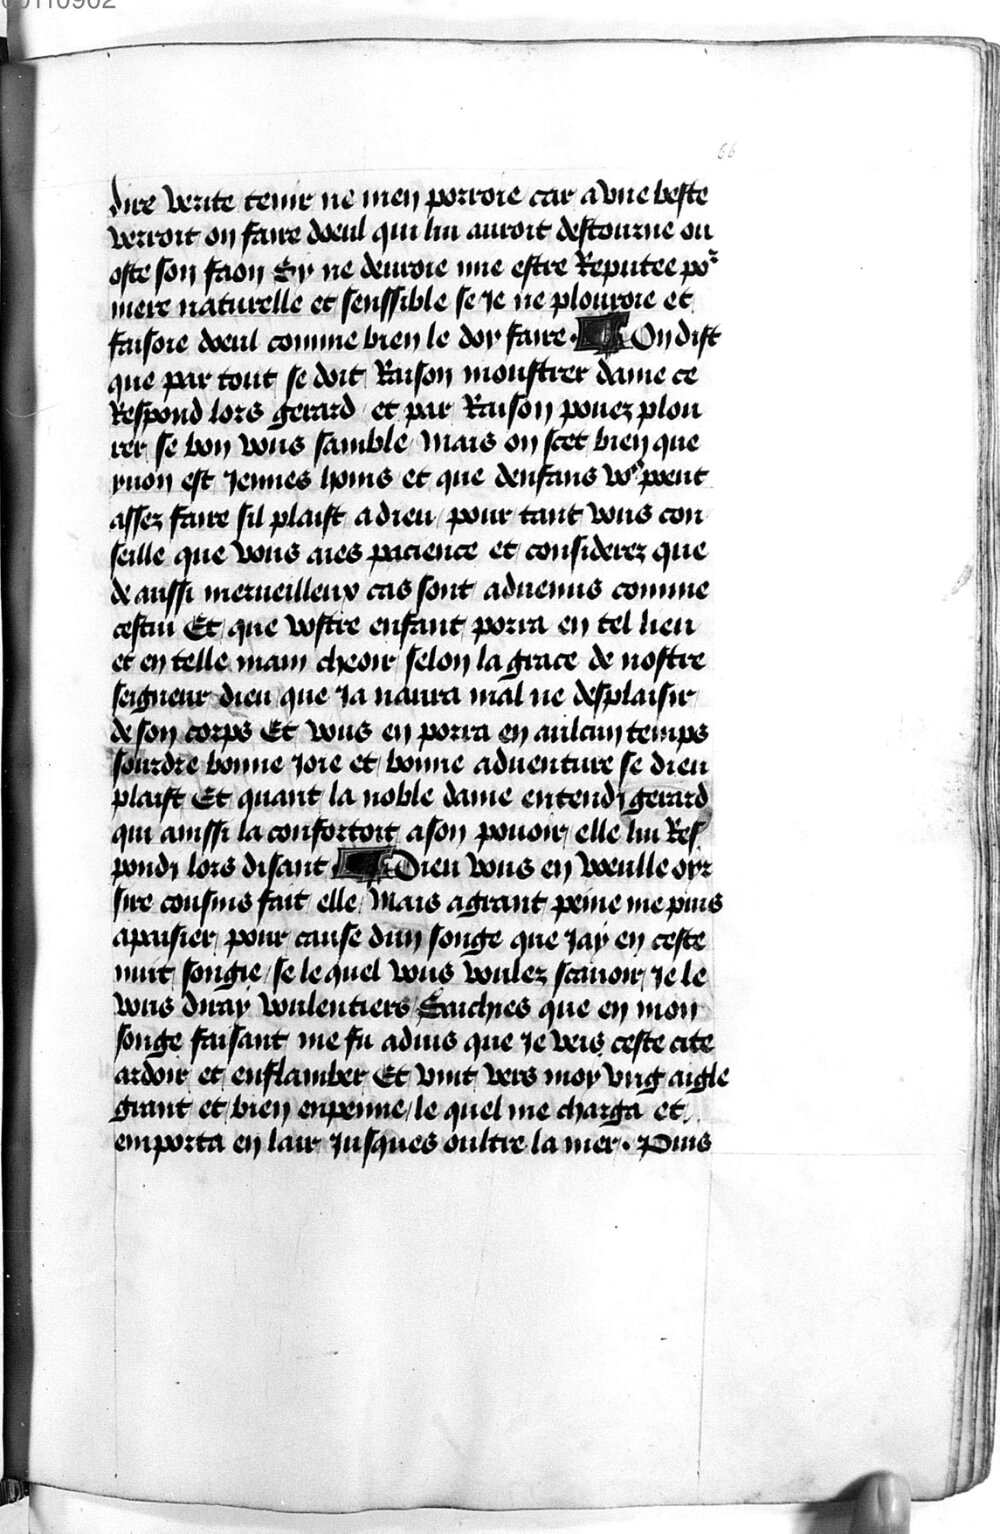 00110902
66
dire verite tenir ne men porroie car a vne beste
verroit on faire doeul qui lui auroit destourne ou
oste son faon Sy ne deuroie mie estre Reputee por
mere naturelle et senssible se je ne plouroie et
faisoie doeul comme bien le doy faire. On dist
que par tout se doit Raison moustrer dame ce
Respond lors gerard et par Raison pouez plou
rer se bon vous samble Mais on scet bien que
yuon est jennes homs et que denfans vos poeut
assez faire sil plaist a dieu pour tant vous con
seille que vous aies pacience et considerez que
de aussi merueilleux cas sont aduenus comme
cestui Et que vostre enfant porra en tel lieu
et en telle main cheoir selon la grace de nostre
seigneur dieu que ja naura mal ne desplaisir
de son corps Et vous en porra en aulcun temps
sourdre bonne joie et bonne aduenture se dieu
plaist Et quant la noble dame entendy gerard
qui ainssi la confortoit a son pouoir elle lui Res
pondy lors disant Dieu vous en voeulle oyr
sire cousins fait elle Mais a grant peine me puis
apaisier pour cause dun songe que jay en ceste
nuit songie se le quel vous voulez scauoir je le
vous diray voulentiers Saichies que en mon
songe faisant me fu aduis que je veis ceste cite
ardoir et enflamber Et vint vers moy vng aigle
grant et bien enpenne le quel me charga et
emporta en lair jusques oultre la mer. Puis